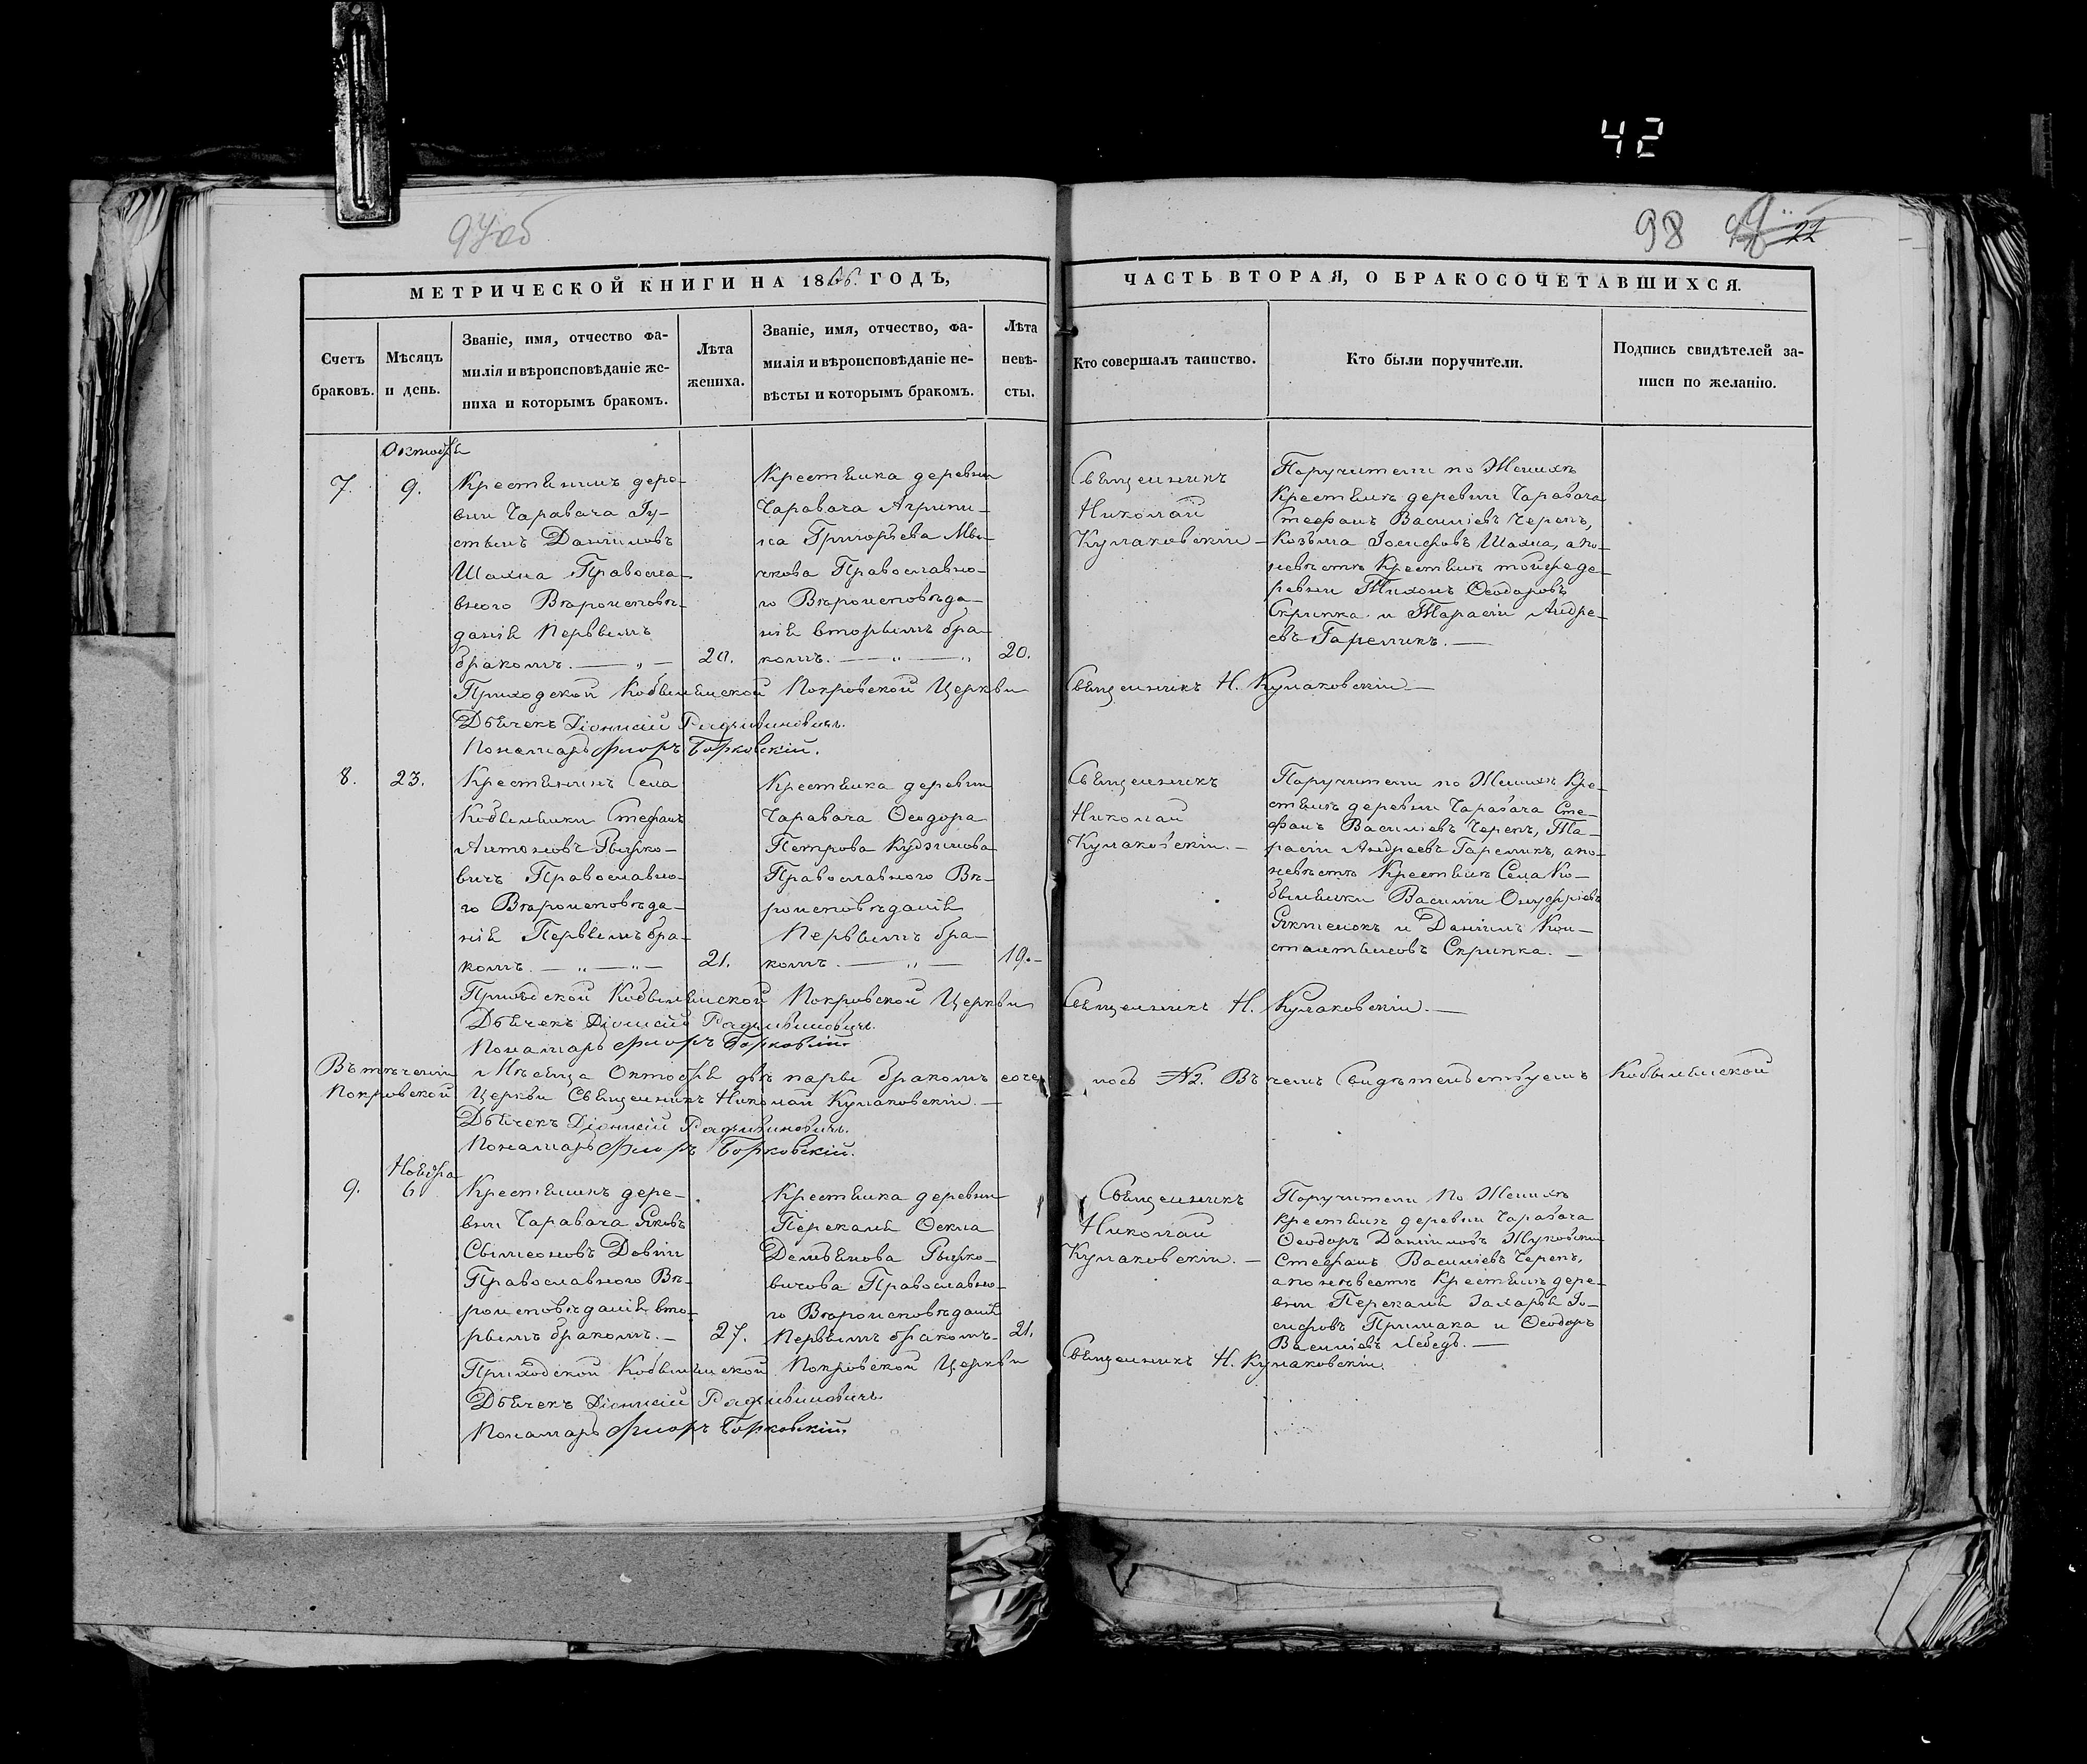 42
97об
98
22
МЕТРИЧЕСКОЙ КНИГИ НА 1866. ГОДЪ,
ЧАСТЬ ВТОРАЯ, О БРАКОСОЧЕТАВШИХСЯ.
Счетъ
браковъ.
Мѣсяцъ
и день.
Званіе, имя, отчество фа-
милія и вѣроисповѣданіе же-
ниха и которымъ бракомъ.
Лѣта
жениха.
Званіе, имя, отчество, фа-
милія и вѣроисповѣданіе не-
вѣсты и которымъ бракомъ.
Лѣта
невѣ-
сты.
Кто совершалъ таинство.
Кто были поручители.
Подпись свидѣтелей за-
писи по желанію.
Октября
7.
9.
Крестьянинъ дере-
вни Чаравача Іу-
стынъ Даніиловъ
Шахна Правосла-
вного Вѣроисповѣ-
данія Первымъ
бракомъ. — „ —
20.
Крестьянка деревни
Чаравача Агрипи-
на Григорьева
Православно-
го Вѣроисповѣда-
нія вторымъ бра-
комъ. — „ — „
20.
Священникъ
Николай
Кулаковскій —
Поручители по Женихѣ
Крестьяне деревни Чаравача
Стефанъ Василіевъ Черепъ,
Козьма Іосифовъ Шахна, а по
невѣстѣ Крестьяне тойже де-
ревни Тихонъ Ѳеодоровъ
Скрипка и Тарасій Андре-
евъ Гареликъ. —
Приходской Кобыльянской Покровской Церкви
Священникъ Н. Кулаковскій —
Дьячекъ Діонисій Радзивиновичъ.
Пономарь Флоръ Борковскій.
8.
23.
Крестьянинъ Села
Кобыльянки Стефанъ
Антоновъ Рышко-
вичъ Православно-
го Вѣроисповѣда-
нія Первымъ бра-
комъ. — „ — „ —
21.
Крестьянка деревни
Чаравача Ѳеодора
Петрова Кудзинова
Православного Вѣ-
роисповѣданія
Первымъ бра-
комъ. — „ —
19. —
Священникъ
Николай
Кулаковскій. —
Поручители по Женихѣ Кре-
стьяне деревни Чаравача Сте-
фанъ Василіевъ Черепъ, Та-
расій Андреевъ Гареликъ, а по
невѣстѣ Крестьяне Села Ко-
быльянки Василій Онуфріевъ
и Даніилъ Кон-
стантиновъ Скрипка. —
Приходской Кобыльянской Покровской Церкви
Священникъ Н. Кулаковскій. —
Дьячекъ Діонисій Радзивиновичъ.
Пономарь Флоръ Борковскій.
Въ теченіи Мѣсяца Октября двѣ пары бракомъ сочет
нось №2. Въ чемъ Свидѣтельствуемъ Кобыльянской
Покровской Церкви Священникъ Николай Кулаковскій. —
Дьячекъ Діонисій Радзивиновичъ.
Пономарь Флоръ Борковскій.
Ноября
9.
6.
Крестьянинъ дере-
вни Чаравача Яковъ
Свімеоновъ Довгій
Православного Вѣ-
роисповѣданія вто-
рымъ бракомъ. —
27.
Крестьянка деревни
Перекалія Ѳекла
Демьянова Рышко-
вичова Православно-
го Вѣроисповѣданія
Первымъ бракомъ —
21.
Священникъ
Николай
Кулаковскій. —
Поручители по Женихѣ
Крестьяне деревни Чаравача
Ѳеодоръ Даніиловъ Жуковскій
Стефанъ Василіевъ Черепъ,
а по невѣстѣ Крестьяне дере-
вни Перекалія Захарья Іо-
сифовъ Примака и Ѳеодоръ
Василіевъ Лебедь. —
Приходской Кобыльянской Покровской Церкви
Священникъ Н. Кулаковскій.
Дьячекъ Діонисій Радзивиновичъ
Пономарь Флоръ Борковскій.